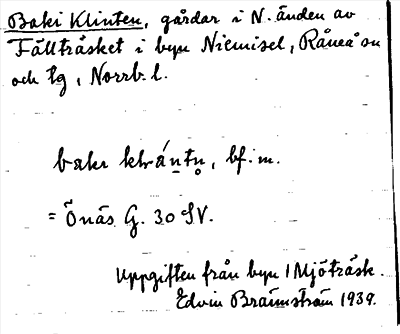 Baki Klinten, gårdar i N. änden av
Fällträsket i byn Niemisel, Råneå sn
och tg, Norrb. l.
bakι bf. m.
= Önäs G. 30 SV.
Uppgiften från byn 1 Mjöträsk.
Edvin Brännström 1939.